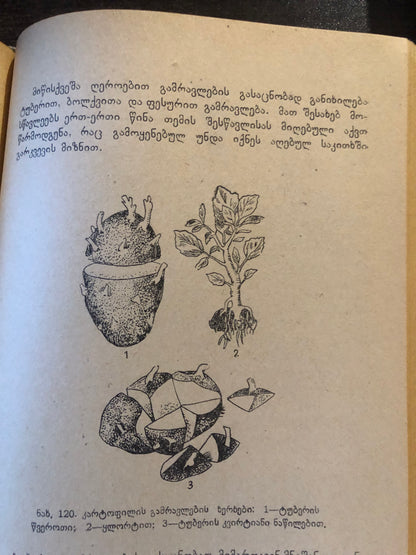 მიწისქვეშა ღეროებით გამრავლების გასაცნობად განიხილება
ტუბერით, ბოლქვითა და ფესურით გამრავლება. მათ შესახებ მო-
სწავლეებს ერთ-ერთი წინა თემის შესწავლისას მიღებული აქვთ
წარმოდგენა, რაც გამოყენებულ უნდა იქნეს აღებულ საკითხში
გარკვევის მიზნით.
1
2
3
ნახ. 120. კარტოფილის გამრავლების ხერხები: 1—ტუბერის
წვეროთი; 2—ყლორტით; 3—ტუბერის კვირტიანი ნაწილებით.